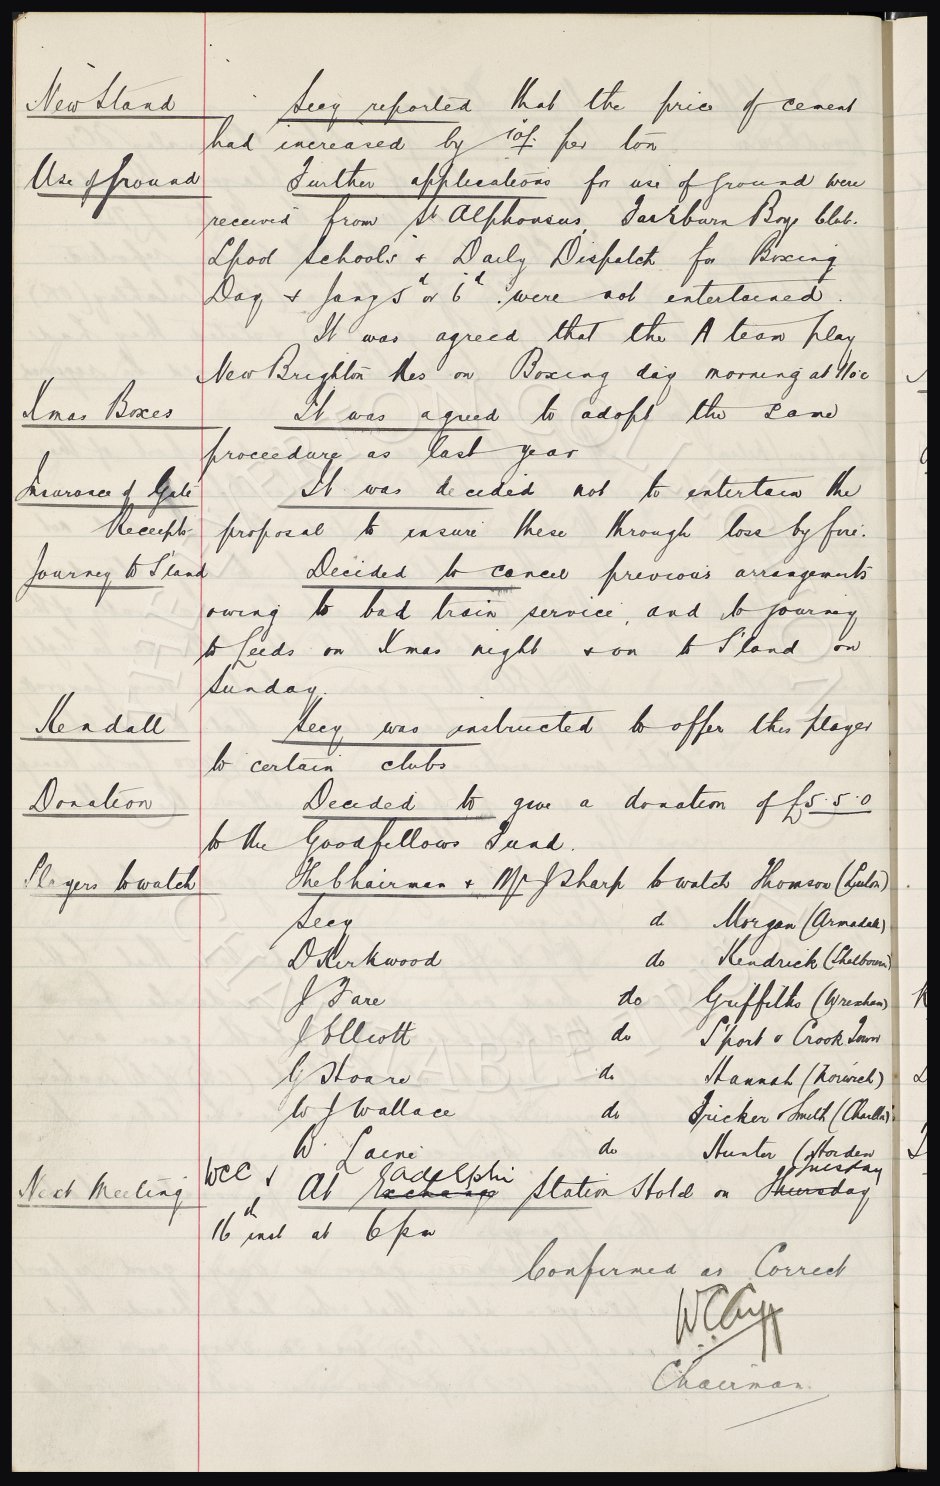 New Stand Secy reported that the price of cement
had increased by 10/- per ton
Use of Ground Further applications for use of ground were
received from St Alphonsus, Boys Club.
Lpool Schools & Daily Dispatch for Boxing
Day & Jany 5th or 6th were not entertained.
It was agreed that the A team play
New Brighton Res on Boxing day morning at 11 o'c
Xmas Boxes It was agreed to adopt the same
proceedure as last year
Insurance of Gate It was decided not to entertain the
Receipts proposal to insure these through loss by fire.
Journey to S'land Decided to cancel previous arrangements
owing to bad train service, and to journey
to Leeds on Xmas night & on to S'land on
Sunday.
Kendall Secy was instructed to offer this player
to certain clubs
Donation Decided to give a donation of £5.5.0
to the Goodfellows Fund.
Players to watch The Chairman & Mr J Sharp to watch Thomson (Luton)
Secy do Morgan (Armadale)
D Kirkwood do Kendrick (Shelbourne)
J Fare do Griffiths (Wrexham)
J Elliott do S'port v Crook Town
G Hoare do Hannah (Norwich)
W J Wallace do Tricker & Smith (Charlton)
do Hunter (Horden
WCC & adelphi Tuesday
Next Meeting At Exchange Station Hotel on Thursday
16th inst at 6 pm
Confirmed as Correct
W.C. Cuff
Chairman.